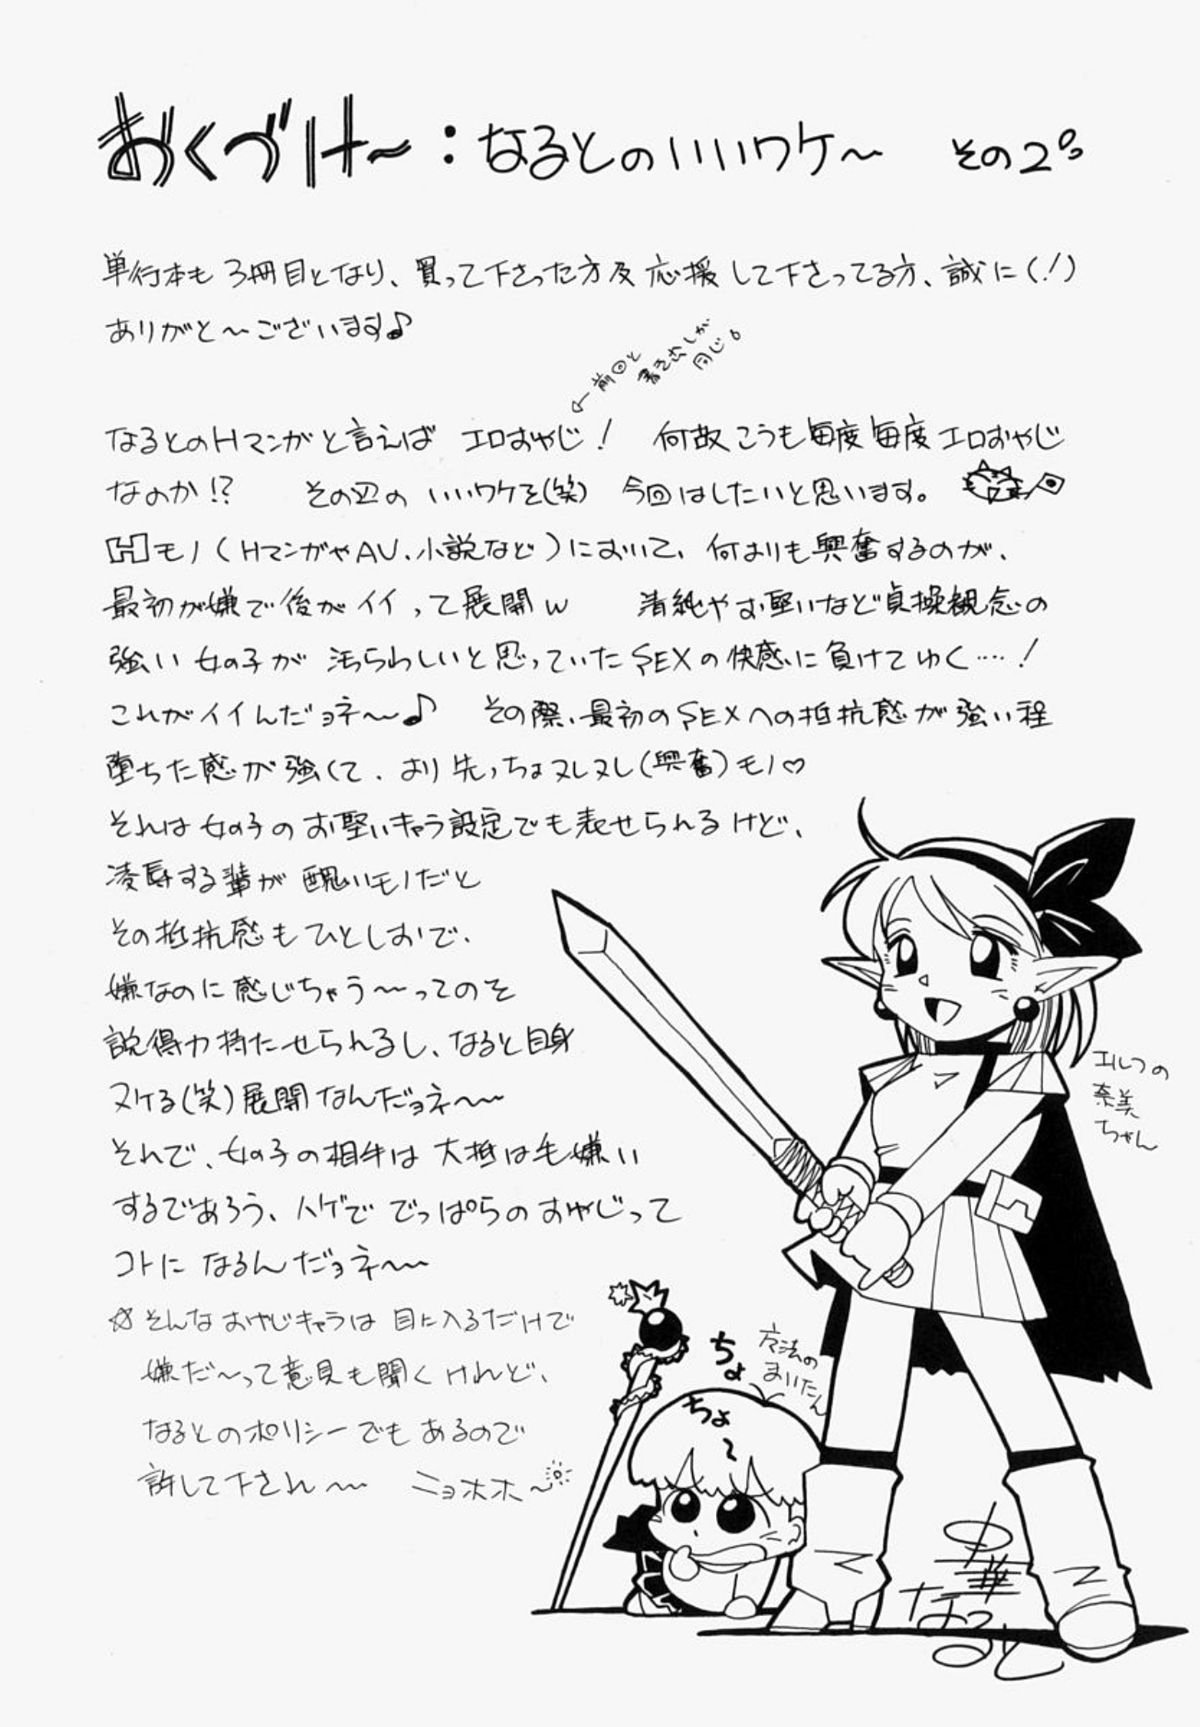 おくづけ〜：なるとのいいワケ〜　その2。
単行本も3冊目となり、買って下さった方及応援して下さってる方、誠に(！)
ありがと〜ございます♪
←前回と
書き出しが
同じ。
なるとのHマンガと言えば エロおやじ！　何故こうも毎度毎度エロおやじ
なのか!?　その辺の いいワケを(笑) 今回はしたいと思います。
Hモノ(HマンガやAV、小説など)において、何よりも興奮するのが、
最初が嫌で後がイイって展開w　清純やお堅いなど貞操観念の
強い女の子が 汚らわしいと思っていたSEXの快感に負けてゆく…！
これがイイんだョネ〜♪　その際、最初のSEXへの抵抗感が強い程
堕ちた感が強くて、より先っちょヌレヌレ(興奮)モノ♡
それは女の子のお堅いキャラ設定でも表せられるけど、
凌辱する輩が 醜いモノだと
その抵抗感もひとしおで、
嫌なのに感じちゃう〜ってのを
説得力持たせられるし、なると自身
ヌケる(笑)展開なんだョネ〜
それで、女の子の相手は大抵は毛嫌い
するであろう、ハゲででっぱらのおやじって
コトになるんだョネ〜
☆そんなおやじキャラは目に入るだけで
嫌だ〜って意見も聞くけれど、
なるとのポリシーでもあるので
許して下され〜　ニョホホ〜
エルフの
奈美
ちゃん
ちょ
ちょ
〜
魔法の
まいたん
なると